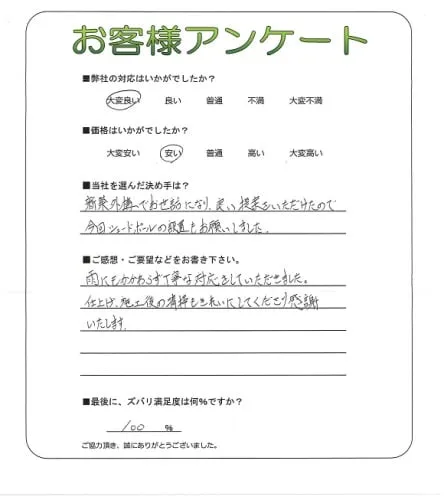 お客様アンケート
■弊社の対応はいかがでしたか？
大変良い 良い 普通 不満 大変不満
■価格はいかがでしたか？
大変安い 安い 普通 高い 大変高い
■当社を選んだ決め手は？
新築外構でお世話になり、良い提案をいただけたので
今回シェードポールの設置もお願いしました。
■ご感想・ご要望などをお書き下さい。
雨にもかかわらず丁寧な対応をしていただきました。
仕上げ、施工後の清掃もきれいにしてくださり感謝
いたします。
■最後に、ズバリ満足度は何％ですか？
100 %
ご協力頂き、誠にありがとうございました。